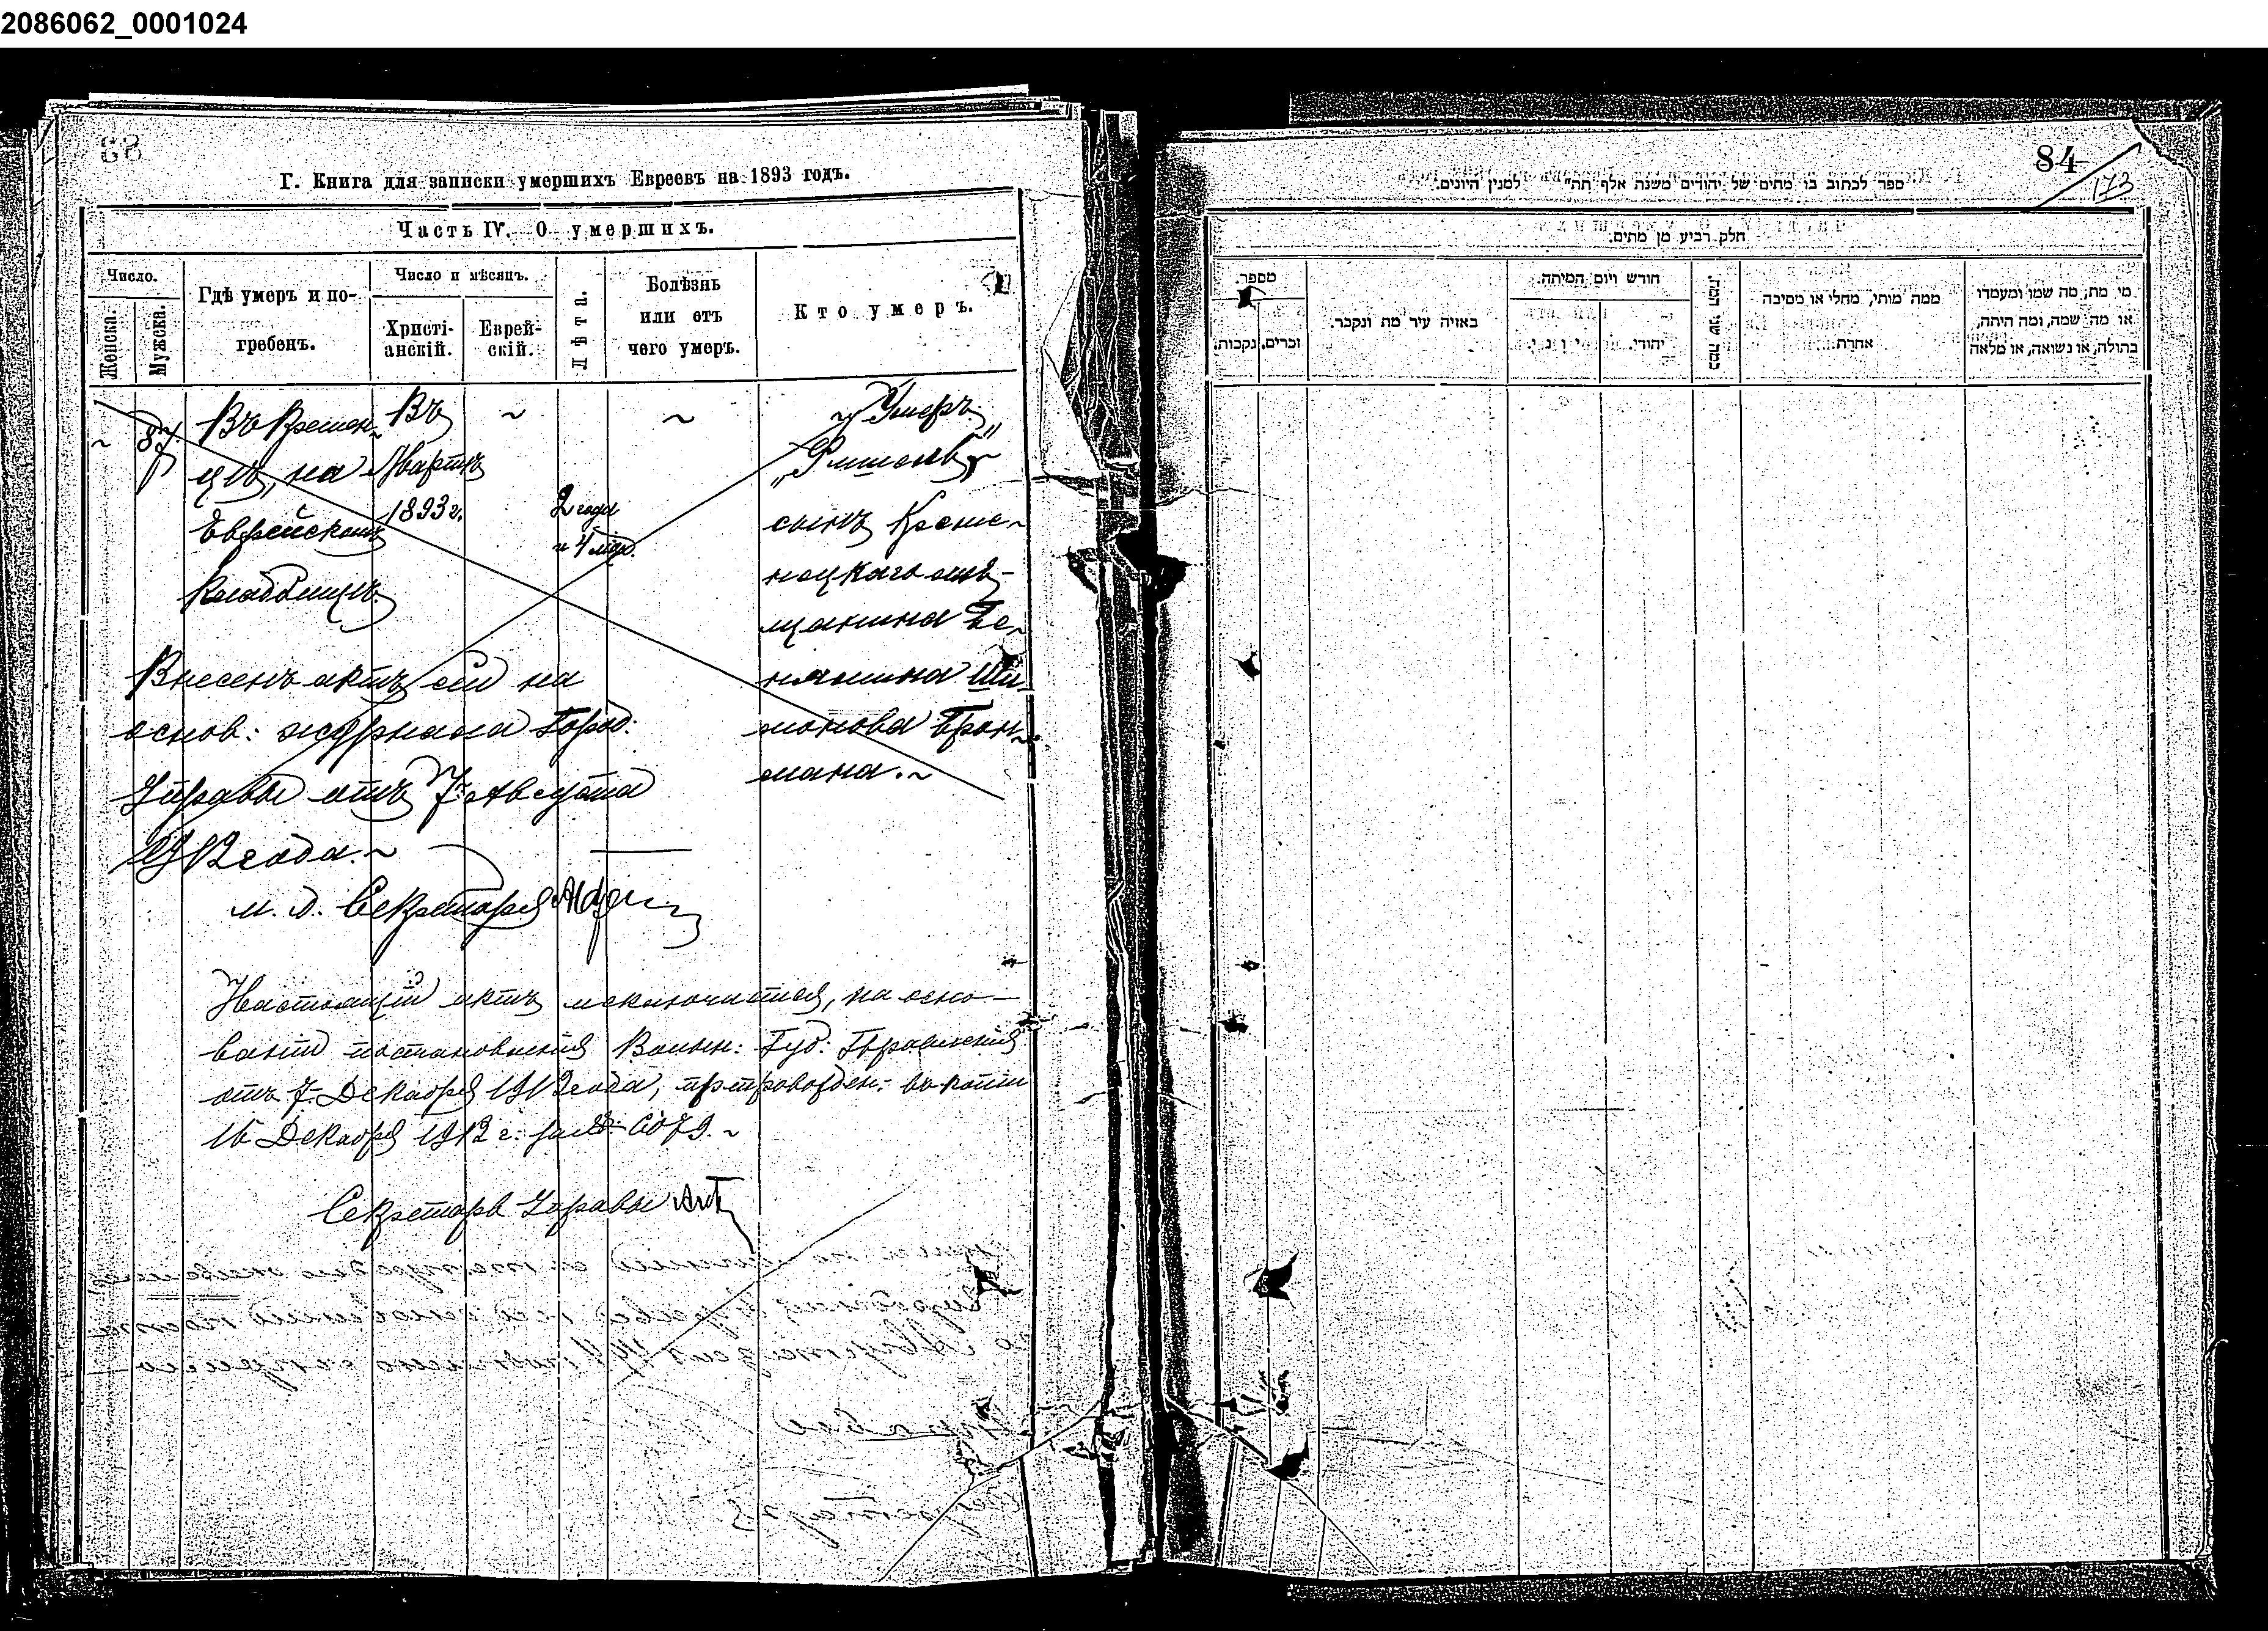 2086062_0001024
83
Г. Книга для записки умершихъ Евреевъ на 1893 годъ.
Часть IV. О умершихъ.
Число.
Женска.
Мужска.
Гдѣ умеръ и по-
гребенъ.
Число и мѣсяцъ.
Христі-
анскій.
Еврей-
скій.
Лѣта.
Болѣзнь
или отъ
чего умеръ.
Кто умеръ.
~ 87 Въ Кременцѣ, на Еврейскомъ кладбищѣ.
Въ Мартѣ 1893 г.
~
2 года
и 4 мѣс.
~
Умеръ
сынъ Креме-
нецкаго мѣ-
щанина Бе-
ніамина Ши-
монова Брон-
мана.~
Внесенъ актъ сей на
основ: журнала Город:
Управы отъ 7 Августа
1912 года.~
и. д. Секретаря
Настоящій актъ исключается, на осно-
ваніи постановленія Волын: Губ: Правленія
отъ 7 Декабря 1912 года, препровожден: въ копіи
16 Декабря 1912 г. за № 6079.~
Секретарь Управы
84
173
ספר לכתוב בו מתים של יהודים משנה אלף תת" למנין היונים.
חלק רביע מן מתים.
מספר.
זכרים.
נקבות.
באיזה עיר מת ונקבר.
חורש ויום המיתה.
יוני.
יהודי.
כמה שני המת.
ממה מותי, מחלי או מסיבה
אחרת
מי מת, מה שמו ומעמדו
או מה שמה, ומה היתה,
בתולה, או נשואה, או מלאה